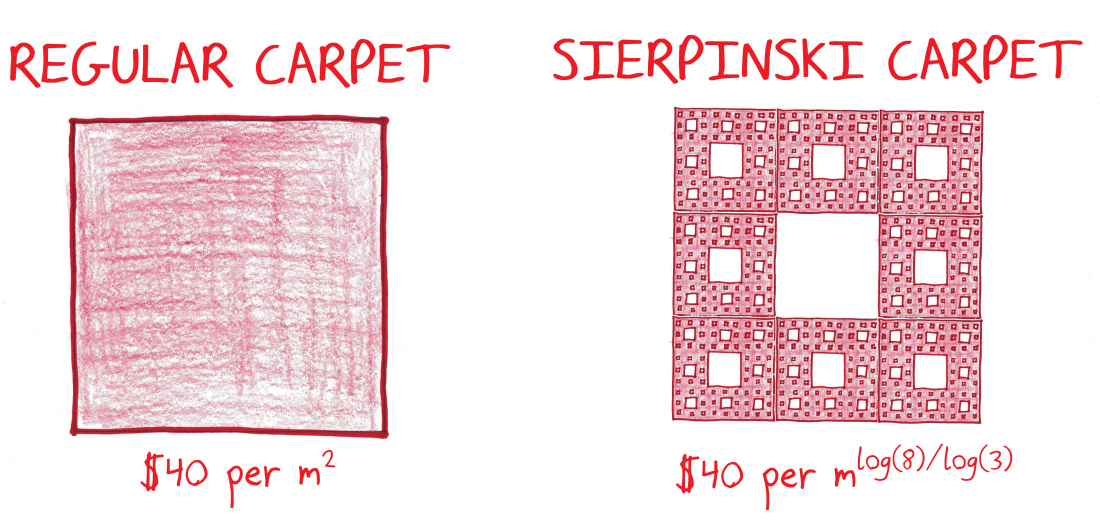 REGULAR CARPET
$40 per m²
SIERPINSKI CARPET
$40 per m^log(8)/log(3)